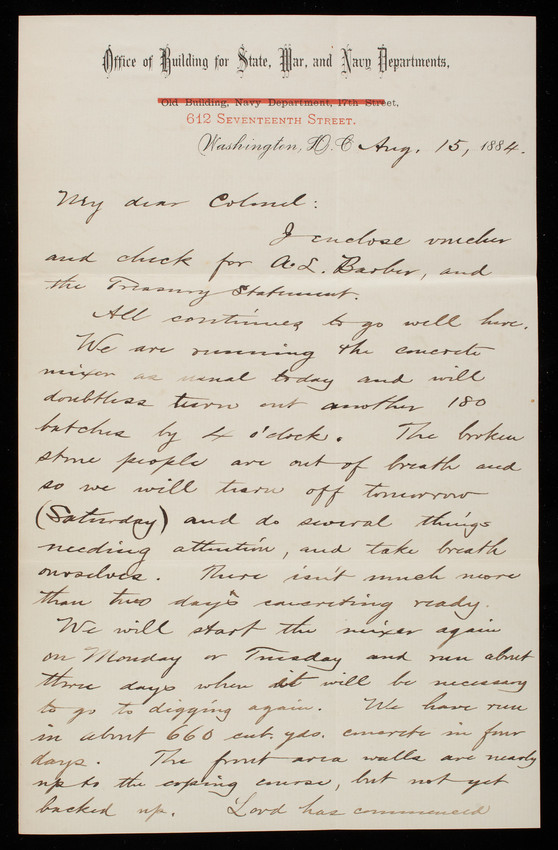 Office of Building for State, War, and Navy Departments,
Old Building, Navy Department, 17th Street,
612 Seventeenth Street.
Washington, D. C. Aug. 15, 1884.
My dear Colonel:
I enclose voucher
and check for A. L. Barber, and
the Treasury Statement.
All continues to go well here.
We are running the concrete
mixer as usual today and will
doubtless turn out another 180
batches by 4 o'clock. The broken
stone people are out of breath and
so we will turn off tomorrow
(Saturday) and do several things
needing attention, and take breath
ourselves. There isn't much more
than two day's concreting ready.
We will start the mixer again
on Monday or Tuesday and run about
three days when it will be necessary
to go to digging again. We have run
in about 660 cub. yds. concrete in four
days. The front area walls are nearly
up to the coping course, but not yet
backed up. Lord has commenced